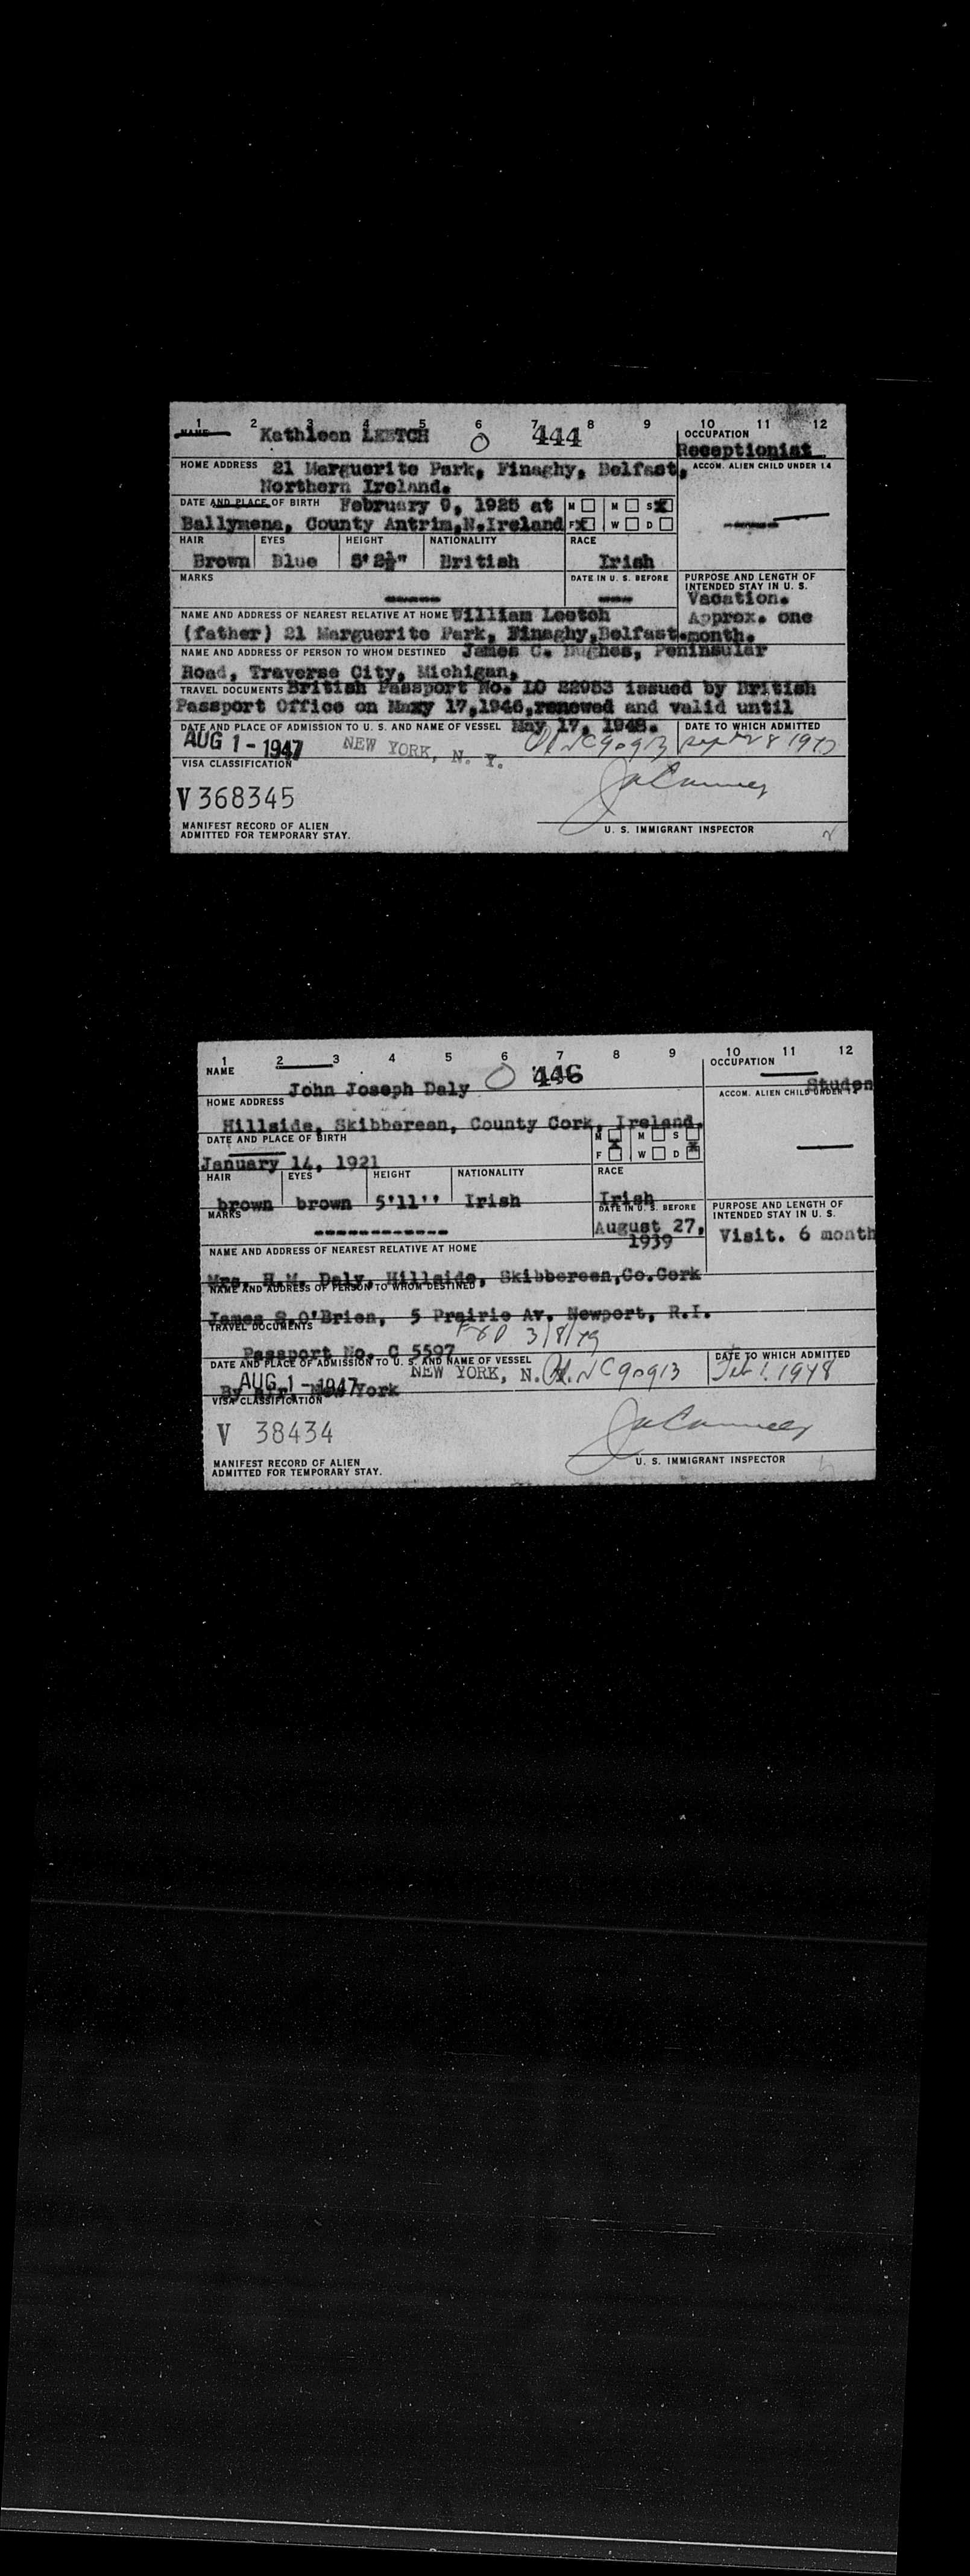 1 2 3 4 5 6 7 8 9 10 11 12
NAME Kathleen LEETCH 444
OCCUPATION
Receptionist
HOME ADDRESS 21 Marguerite Park, Finaghy, Belfast,
Northern Ireland.
ACCOM. ALIEN CHILD UNDER 14
DATE AND PLACE OF BIRTH February 9, 1925 at
M M S X
Ballymena, County Antrim,N.Ireland
F X W D
HAIR EYES HEIGHT NATIONALITY RACE
Brown Blue 5' 2½" British Irish
MARKS
DATE IN U. S. BEFORE
PURPOSE AND LENGTH OF
INTENDED STAY IN U. S.
Vacation.
Approx. one
month.
NAME AND ADDRESS OF NEAREST RELATIVE AT HOME William Leetch
(father) 21 Marguerite Park, Finaghy,Belfast.
NAME AND ADDRESS OF PERSON TO WHOM DESTINED James C. Hughes, Peninsular
Road, Traverse City, Michigan.
TRAVEL DOCUMENTS British Passport No. LO 22953 issued by British
Passport Office on Maxy 17,1946,renewed and valid until
May 17, 1948.
DATE AND PLACE OF ADMISSION TO U. S. AND NAME OF VESSEL
DATE TO WHICH ADMITTED
AUG 1 - 1947 NEW YORK, N. Y. NC90913 Sept 28 1947
VISA CLASSIFICATION
V 368345
MANIFEST RECORD OF ALIEN
ADMITTED FOR TEMPORARY STAY.
U. S. IMMIGRANT INSPECTOR
1 2 3 4 5 6 7 8 9 10 11 12
NAME
John Joseph Daly 446
OCCUPATION
Studen
HOME ADDRESS
Hillside, Skibbereen, County Cork, Ireland.
ACCOM. ALIEN CHILD UNDER 14
DATE AND PLACE OF BIRTH
January 14, 1921
M X M S
F W D X
HAIR EYES HEIGHT NATIONALITY RACE
brown brown 5'11'' Irish Irish
MARKS
------------
DATE IN U. S. BEFORE
August 27,
1939
PURPOSE AND LENGTH OF
INTENDED STAY IN U. S.
Visit. 6 month
NAME AND ADDRESS OF NEAREST RELATIVE AT HOME
Mrs. H.M. Daly, Hillside, Skibbereen,Co.Cork
NAME AND ADDRESS OF PERSON TO WHOM DESTINED
James S.O'Brien, 5 Prairie Av. Newport, R.I.
TRAVEL DOCUMENTS
Passport No. C 5597
DATE AND PLACE OF ADMISSION TO U. S. AND NAME OF VESSEL
DATE TO WHICH ADMITTED
AUG 1 - 1947 NEW YORK, N. Y. NC90913 Feb 1. 1948
By Air, New York
VISA CLASSIFICATION
V 38434
MANIFEST RECORD OF ALIEN
ADMITTED FOR TEMPORARY STAY.
U. S. IMMIGRANT INSPECTOR